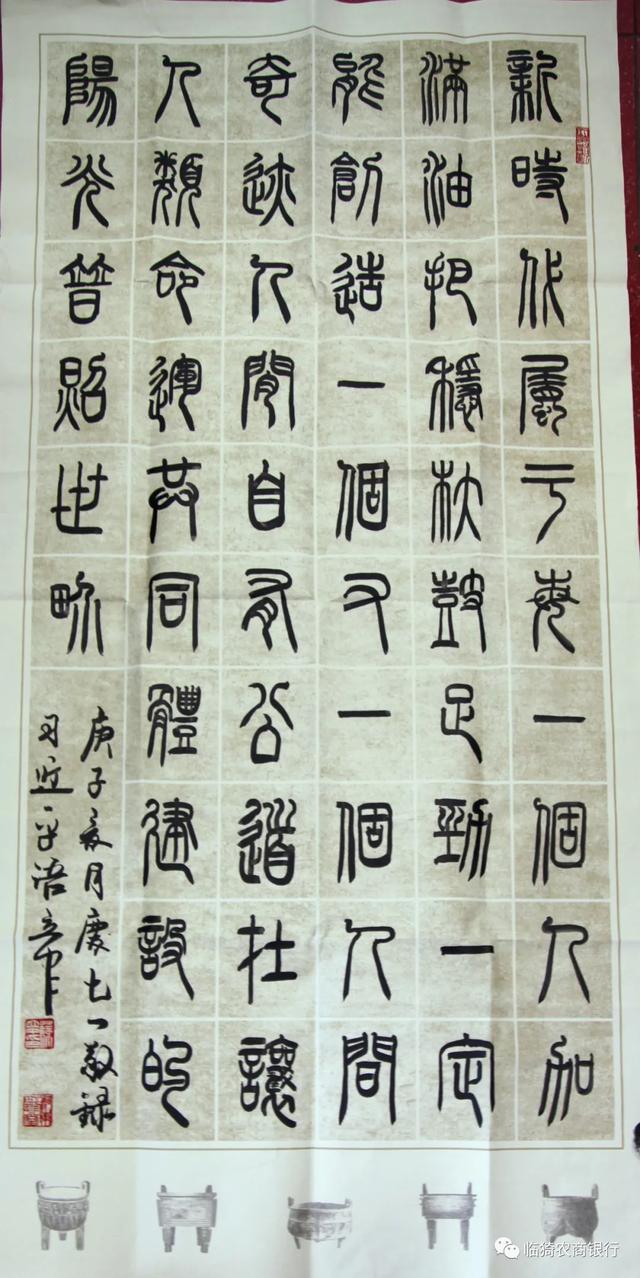 新時代屬于每一個人加
滿油把穩杕鼓足勁一定
能創造一個又一個人間
奇迹人間自有公道在讓
人類命運共同體建設的
陽光普照世界
庚子夏月慶七一敬録
习近平语
临猗农商银行